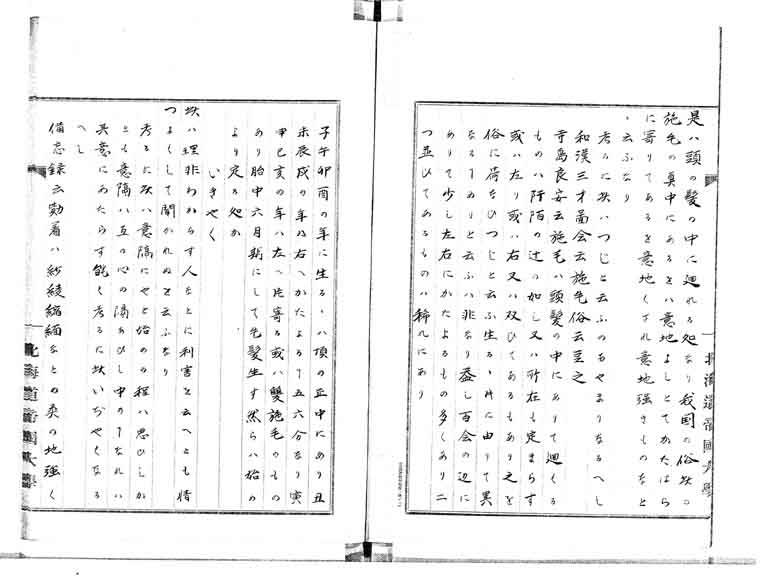 是ハ頭の髪の中に廻れる処なり我国の俗 ニ
施毛の真中にあるをハ意地よしとてかたはら
に寄りてあるを意地くされ意地強きものなと
、云ふなり
考るに ハつじと云ふのあやまりなるへし
和漢三才畨会云施毛俗云 之
寺島良安云施毛ハ頭髪の中にありて廻くる
ものハ阡陌の辻の如し又ハ所在も定まらす
或ハ左り或ハ右又ハ双ひてあるもあり之を
俗に荷なひつじと云ふ生るゝ片に由りて異
なるありと云ふハ非なり蓋し百会の辺に
ありて少し左右にかたよるもの多くあり二
つ並ひてあるものハ稀れにあり
北海道帝國大學
子午卯酉の年に生るゝハ頂の正中にあり丑
未辰戌の年ハ右へかたよる十五六分なり寅
申巳亥の年ハ左へ片寄る或ハ雙施毛のもの
あり胎中六月斯にして毛髪生す然らハ始め
より定る処か
いきやく
ハ理非わからす人なとに利害を云へとも情
つよくして聞かれぬを云ふなり
考るに ハ意隔にやと始めの程ハ思ひしか
とも意隔ハ互の心の隔あひし中の なれハ
其意にあたらす能く考るに いぢやくなる
へし
備忘録云 着ハ紗綾縮緬なとの柔の地強く
北海道帝國大學